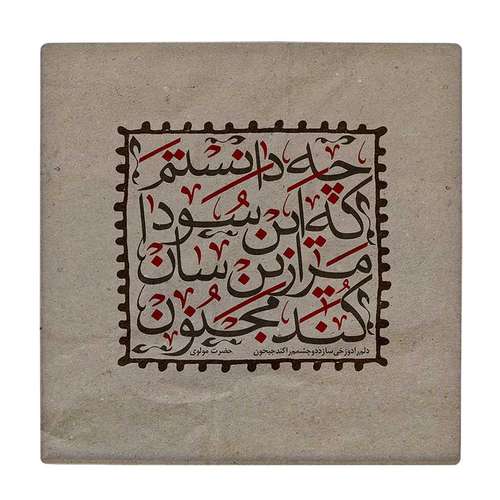 چه دانستم
که این سودا
مرا زین سان
کند مجنون
دلم را دوزخی سازد دو چشمم را کند جیحون حضرت مولوی